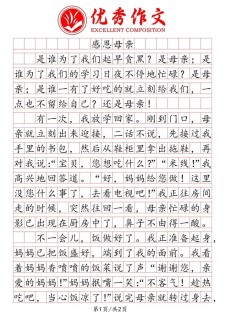 优秀作文
EXCELLENT COMPOSITION
感恩母亲
是谁为了我们起早贪黑？是母亲；是
谁为了我们的学习日夜不停地忙碌？是母
亲；是谁一有了好吃的就立刻给我们，一
点也不留给自己？还是母亲！
有一次，我放学回家。刚到门口，母
亲就立刻出来迎接，二话不说，先接过我
手里的书包，然后从鞋柜里拿出拖鞋，再
对我说：“宝贝，您想吃什么？”“米线！”我
高兴地回答道。“好，妈妈给您做！这里
没您什么事了，去看电视吧！”我正往房间
走的时候，突然往回一看，母亲忙碌的身
影已出现在厨房中了，鼻子不由得一酸。
不一会儿，饭做好了。我正准备起身，
妈妈已把饭盛好，端到了我的面前。我看
着妈妈香喷喷的饭菜说了声“谢谢您，亲
爱的妈妈！”妈妈横一笑：“不客气！趁热
吃吧，当心饭凉了！”说完母亲就转过身去，
第1页/共2页